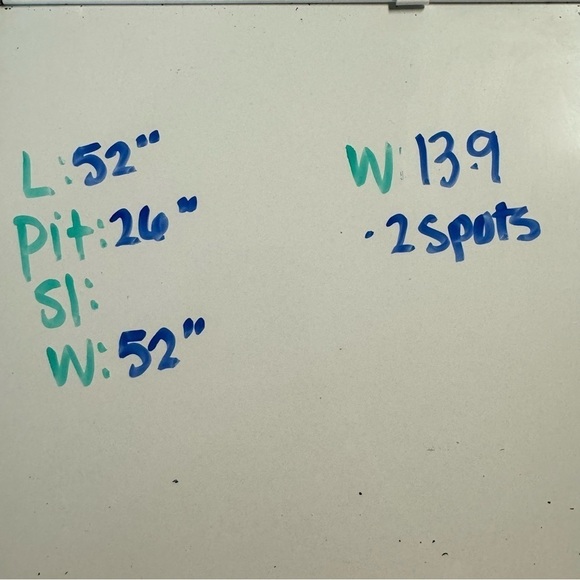 L: 52"
Pit: 26"
Sl:
W: 52"
W: 13.9
· 2 spots